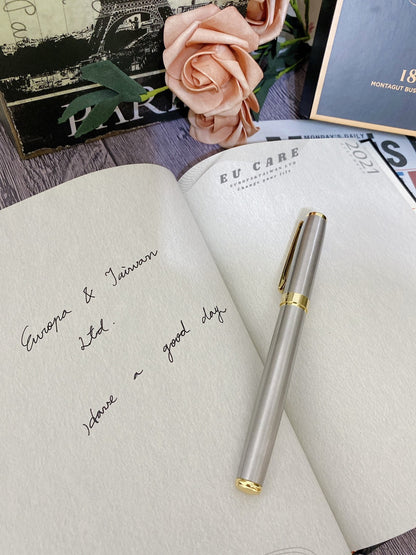 Pa
PARIS
18
MONTAGUT BUS
MONDAY'S DAILY
2021
EU CARE
EUROPA&TAIWAN LTD
Change your life
Europa & Taiwan
Ltd.
Have a good day